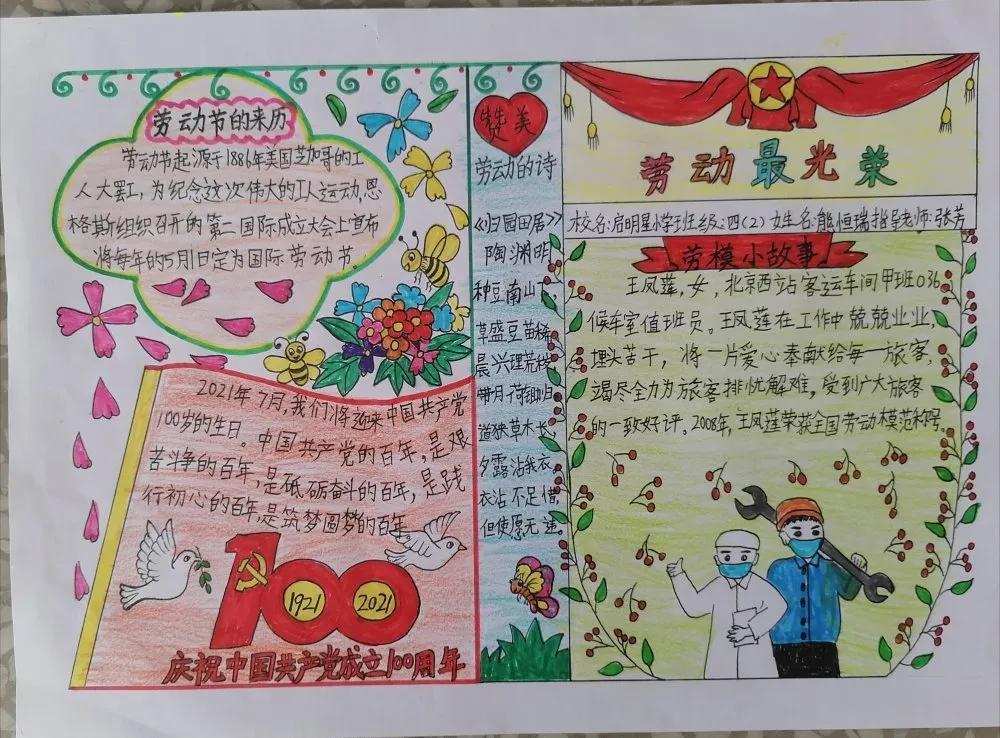 劳动节的来历
劳动节起源于1886年美国芝加哥的工
人大罢工,为纪念这次伟大的工人运动,恩
格斯组织召开的第二国际成立大会上宣布
将每年的5月1日定为国际劳动节。
2021年7月,我们将迎来中国共产党
100岁的生日。中国共产党的百年,是艰
苦斗争的百年,是砥砺奋斗的百年,是践
行初心的百年,是筑梦圆梦的百年。
100
1921
2021
庆祝中国共产党成立100周年
赞美
劳动的诗
《归园田居》
陶渊明
种豆南山下
草盛豆苗稀
晨兴理荒秽
带月荷锄归
道狭草木长
夕露沾我衣
衣沾不足惜
但使愿无违
劳动最光荣
校名:启明星小学班级:四(2)女姓名:熊恒瑞指导老师:张芳
劳模小故事
王凤莲,女,北京西站客运车间甲班036
候车室值班员。王凤莲在工作中兢兢业业,
埋头苦干,将一片爱心奉献给每一旅客,
竭尽全力为旅客排忧解难,受到广大旅客
的一致好评。2008年,王凤莲荣获全国劳动模范称号。